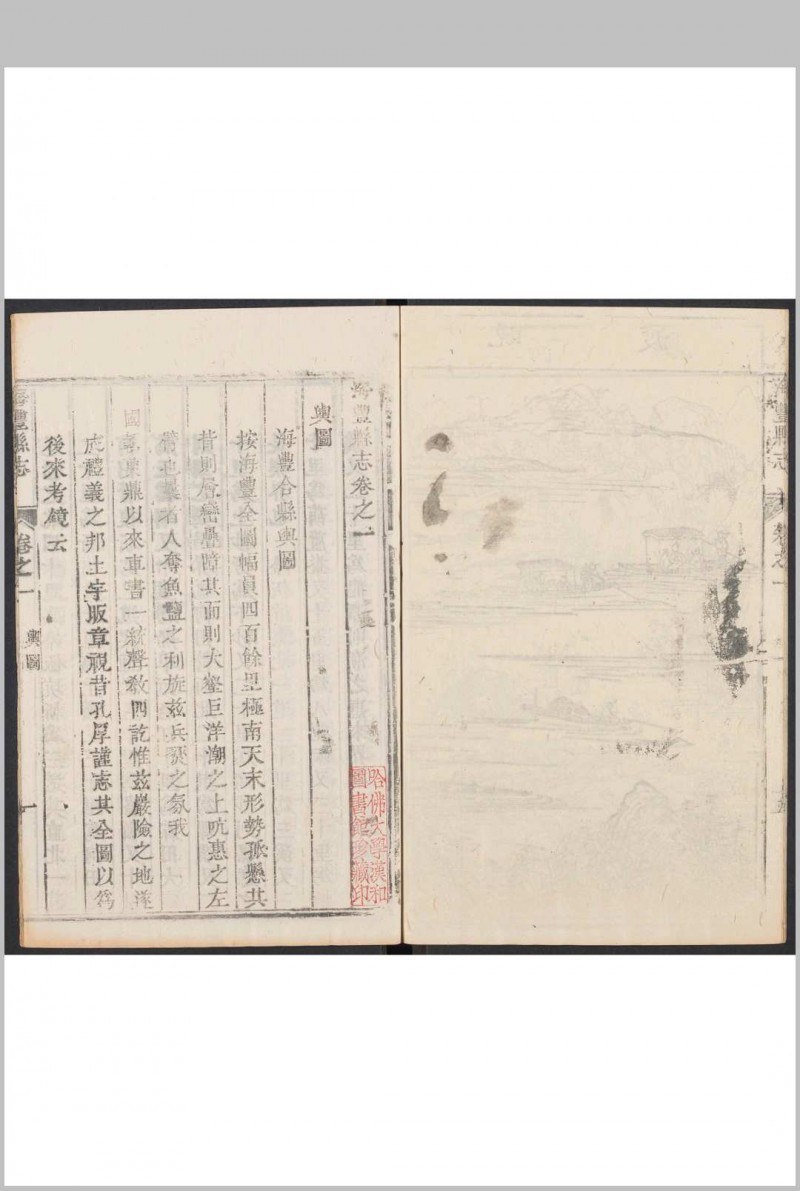 海豐縣志卷之一
輿圖
海豐合縣輿圖
按海豐全圖幅員四百餘里極南天末形勢孤懸其
背則層巒疊障其面則大壑巨洋潮之上吭惠之左
臂也曩者人奪魚鹽之利旋兹兵燹之氛我
國朝定鼎以來車書一統聲教四訖惟兹巖險之地遂
成禮義之邦土宇版章視昔孔厚謹志其全圖以爲
後來考鏡云
海豐縣志
卷之一
輿圖
一
哈佛大學漢和
圖書館珍藏印
海豐縣志
卷之一